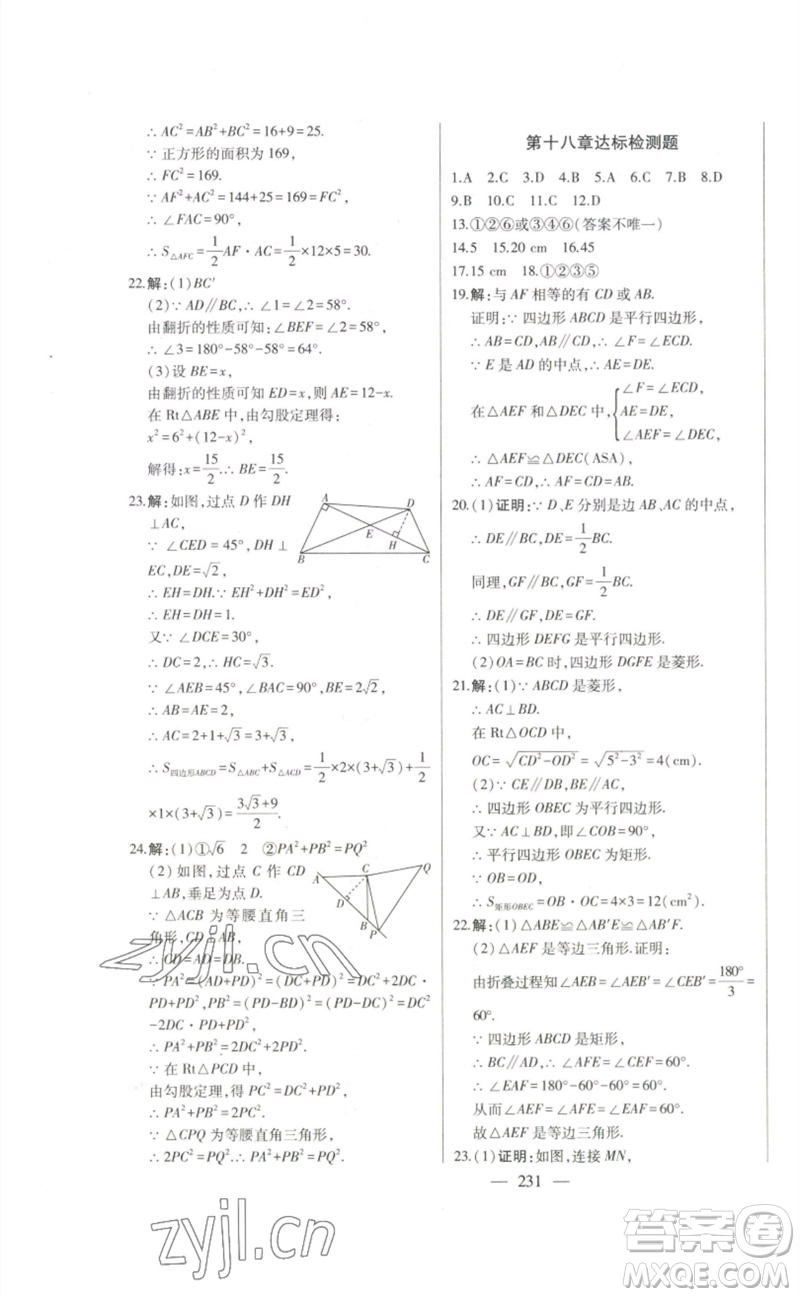 ∴ AC²=AB²+BC²=16+9=25.
∵ 正方形的面积为 169,
∴ FC²=169.
∵ AF²+AC²=144+25=169=FC²,
∴ ∠FAC=90°,
∴ S△AFC=1/2 AF·AC=1/2×12×5=30.
22.解:(1)BC′
(2)∵ AD∥BC,∴ ∠1=∠2=58°.
由翻折的性质可知:∠BEF=∠2=58°,
∴ ∠3=180°-58°-58°=64°.
(3)设 BE=x,
由翻折的性质可知 ED=x,则 AE=12-x.
在 Rt△ABE 中,由勾股定理得:
x²=6²+(12-x)²,
解得:x=15/2.∴ BE=15/2.
23.解:如图,过点 D 作 DH
⊥AC,
∵ ∠CED=45°,DH⊥
EC,DE=√2,
∴ EH=DH.∵ EH²+DH²=DE²,
∴ EH=DH=1.
又∵ ∠DCE=30°,
∴ DC=2,∴ HC=√3.
∵ ∠AEB=45°,∠BAC=90°,BE=2√2,
∴ AB=AE=2,
∴ AC=2+1+√3=3+√3,
∴ S四边形ABCD=S△ABC+S△ACD=1/2×2×(3+√3)+1/2
×1×(3+√3)=(3√3+9)/2.
A
D
E
H
B
C
24.解:(1)①√6 2 ②PA²+PB²=PQ²
(2)如图,过点 C 作 CD
⊥AB,垂足为点 D.
∵ △ACB 为等腰直角三
角形,CD⊥AB,
∴ CD=AD=DB.
∵ PA²=(AD+PD)²=(DC+PD)²=DC²+2DC·
PD+PD²,PB²=(PD-BD)²=(PD-DC)²=DC²-
2DC·PD+PD²,
∴ PA²+PB²=2DC²+2PD².
∵ 在 Rt△PCD 中,
由勾股定理,得 PC²=DC²+PD²,
∴ PA²+PB²=2PC².
∵ △CPQ 为等腰直角三角形,
∴ 2PC²=PQ².∴ PA²+PB²=PQ².
A
C
Q
D
B
P
第十八章达标检测题
1.A 2.C 3.D 4.B 5.B 6.D 7.B 8.D
9.B 10.C 11.C 12.D
13.①②⑥或③④⑥(答案不唯一)
14.5 15.20 cm 16.45
17.15 cm 18.①②③⑤
19.解:与 AF 相等的有 CD 或 AB.
证明:∵ 四边形 ABCD 是平行四边形,
∴ AB=CD,AB∥CD,∴ ∠F=∠ECD.
∵ E 是 AD 的中点,∴ AE=DE.
在 △AEF 和 △DEC 中,{∠F=∠ECD,
AE=DE,
∠AEF=∠DEC,
∴ △AEF≌△DEC(ASA),
∴ AF=CD,∴ AF=CD=AB.
20.(1)证明:∵ D、E 分别是边 AB、AC 的中点,
∴ DE∥BC,DE=1/2 BC.
同理,GF∥BC,GF=1/2 BC.
∴ DE∥GF,DE=GF.
∴ 四边形 DEFG 是平行四边形.
(2)OA=BC 时,四边形 DGFE 是菱形.
21.解:(1)∵ ABCD 是菱形,
∴ AC⊥BD.
在 Rt△OCD 中,
OC=√(CD²-OD²)=√(5²-3²)=4(cm).
(2)∵ CE∥DB,BE∥AC,
∴ 四边形 OBEC 为平行四边形.
又∵ AC⊥BD,即∠COB=90°,
∴ 平行四边形 OBEC 为矩形.
∴ S矩形OBEC=OB·OC=4×3=12(cm²).
22.解:(1)△ABE≌△AB′E≌△AB′F.
(2)△AEF 是等边三角形.证明:
由折叠过程知∠AEB=∠AEB′=∠CEB′=180°/3=
60°.
∵ 四边形 ABCD 是矩形,
∴ BC∥AD,∴ ∠AFE=∠CEF=60°.
∴ ∠EAF=180°-60°-60°=60°.
从而∠EAF=∠AFE=∠AEF=60°.
故△AEF 是等边三角形.
23.(1)证明:如图,连接 MN,
— 231 —
zyjl.cn
zyjl.cn
答案圈
MXQE.COM